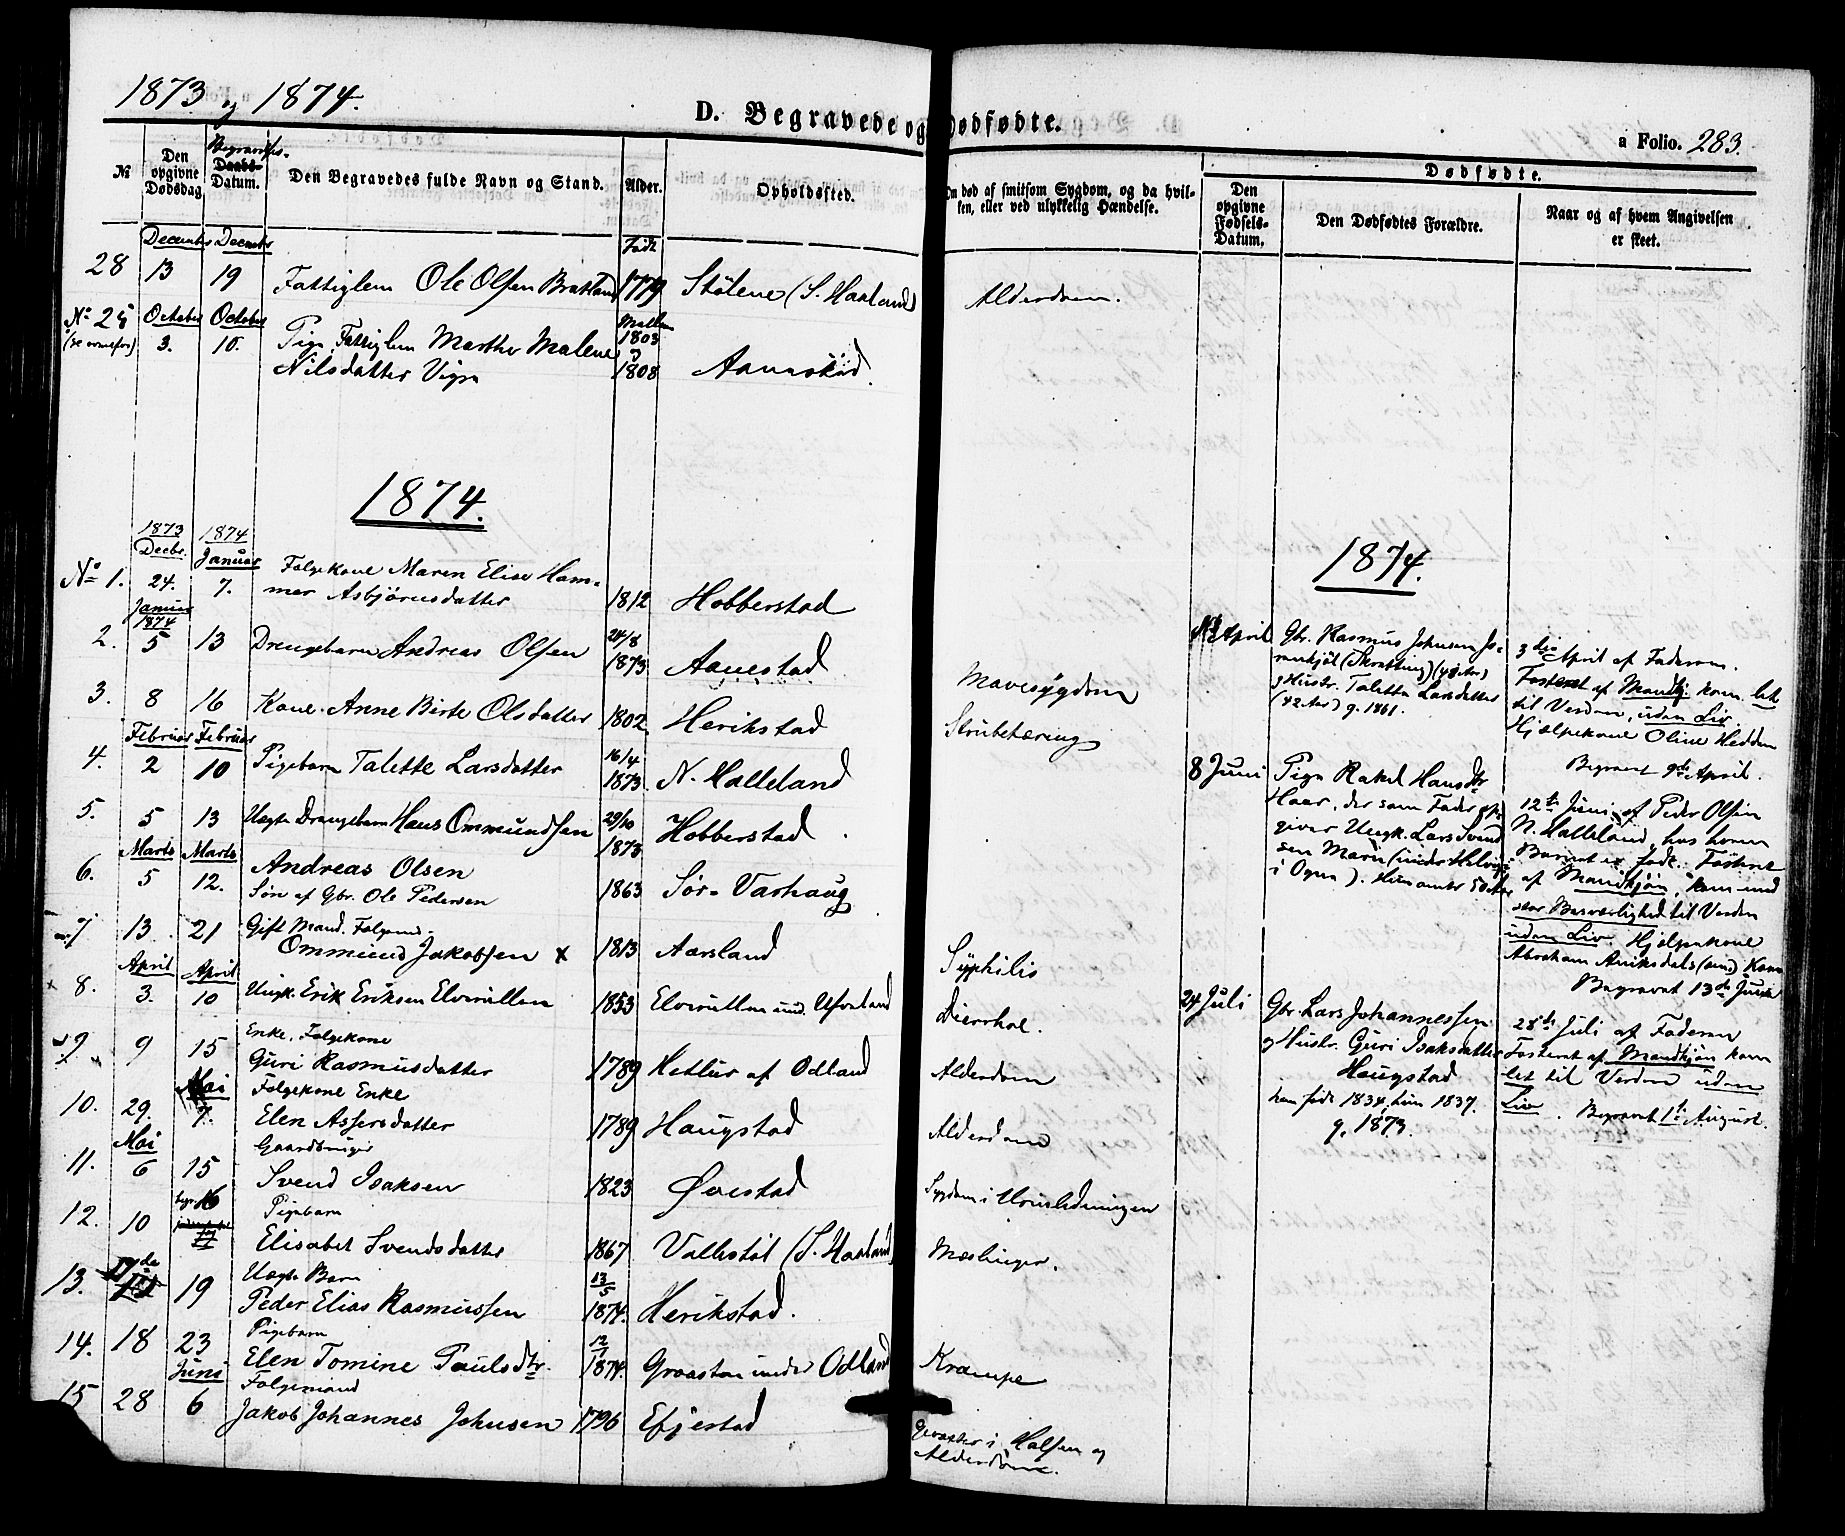 1873 og 1874.
D. Begravede og Dødfødte.
a Folio. 283.
№
Den opgivne Dødsdag
Begravelses-
Daabs-
Datum.
Den Begravedes fulde Navn og Stand.
Alder.
Opholdssted.
Om død af smitsom Sygdom, og da hvil-
ken, eller ved ulykkelig Hændelse.
Dødfødte.
Den opgivne Fødsels-Datum.
Den Dødfødtes Forældre.
Naar og af hvem Angivelsen
er skeet.
December December Født
28 13 19 Fattiglem Ole Olsen Bratland 1779 Stølene (S. Haaland) Alderdom.
No 25 October October Mellem 1803
3. 10. Pige Fattiglem Marthe Malene
Nilsdatter Vigre 1808 Aanestad.
1874.
1873 Decbr. 1874 Januar
No 1. 24. 7. Folgekone Maren Elise Ham-
mer Asbjørnsdatter 1812 Hobberstad
Januar 1874
2. 5 13 Drengebarn Andreas Olsen 24/8 1873 Aanestad
3. 8 16 Kone Anne Birte Olsdatter 1802. Herikstad Mavesygdom
Februar Februar
4. 2 10 Pigebarn Talette Larsdatter 16/4 1873. N. Halleland Strubetæring
5. 5 13 Uægte Drengebarn Hans Ommundsen 29/10 1873 Hobberstad
Marts Marts
6. 5 12. Andreas Olsen
Søn af Gbr. Ole Pedersen 1863 Sør-Varhaug
7 13 21 Gift Mand. Folgemd.
Ommund Jakobsen x 1813 Aarsland Syphilis
April April
8. 3. 10 Ungk. Erik Eriksen Elvevillen 1853 Diarrhoe.
9 9 15 Enke, Folgekone
Guri Rasmusdatter 1789 Hetlur af Odland Alderdom
Mai
10. 29. 7. Folgekone Enke
Elen Assersdatter 1789 Haugstad Alderdom
Mai
11. 6 15 Gaardbruger
Svend Isaksen 1823 Øvestad Sygdom i Urinledningen
12. 10 begr. 16
17 Pigebarn
Elisabet Svendsdatter 1867 Vallestøl (S. Haaland) Mæslinger.
13. 17de 19 Uægte Barn
Peder Elias Rasmussen 13/5 1874. Herikstad.
14. 18 23 Pigebarn
Elen Tomine Paulsdtr. 1874. Graasten under Odland Krampe
Juni
15 28 6 Folgemand
Jakob Johannes Johnsen 1796 Efjestad
i Halsen og
Alderdom.
1874.
April Gbr. Rasmus Johnsen
(Skratting) (48 Aar)
og Hustr. Taletta Larsdatter
(42 Aar) g. 1861.
3die April af Faderen.
Fosteret af Mandkj. kom let
til Verden, uden Liv.
Hjælpekone Oline Hedden
Begravet 9de April.
8 Juni Pige Rakel Hansdtr.
Haar, der som Fader op-
giver Ungk. Lars Svend-
sen
i Ogna).
12te Juni af Peder Olsen
N. Halleland, hos hvem
Barnet er født. Fosteret
af Mandkjøn, kom med
stor Besværlighed til Verden
uden Liv. Hjælpekone
Abraham Aniksdals (smd) Kone
Begravet 13de Juni
24 Juli Gbr. Lars Johannessen
og Hustr. Guri Isaksdatter
Haugstad
han født 1834, hun 1837.
g. 1873.
28de Juli af Faderen
Fosteret af Mandkjøn kom
let til Verden uden
Liv. Begravet 1te August.